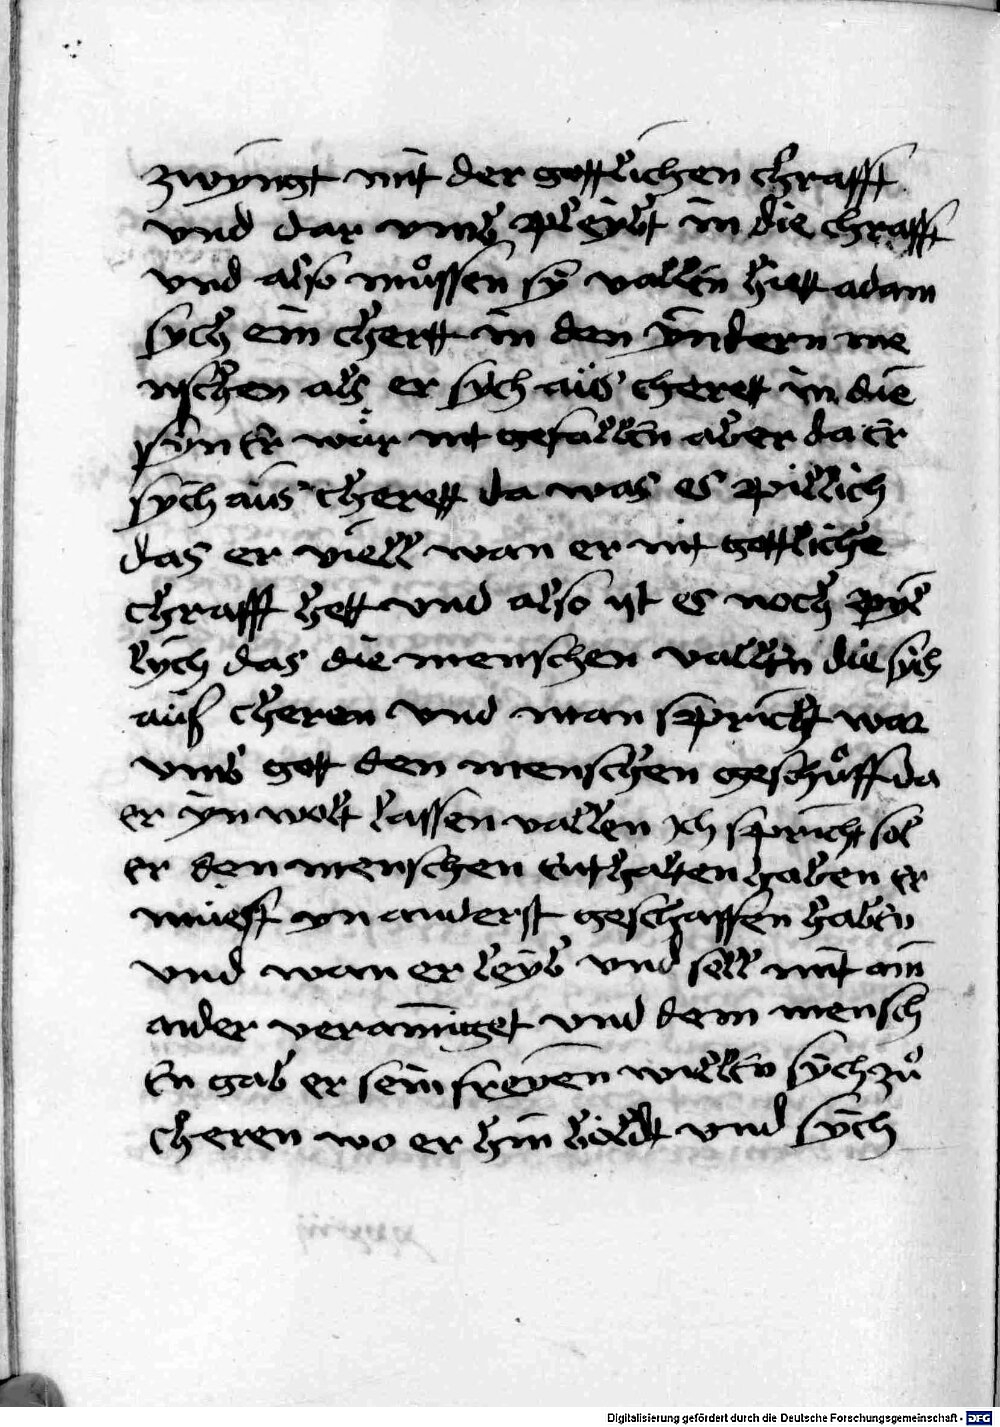 zwyngt mit der gottlichen chrafft
vnd dar vmb pleybt in die chrafft
vnd also müssen sy vallen hiett adam
sych ein chertt in den yndern me
nschen als er sych aüs cherett in die
syn Er wär nit gefallen aber da Er
sych aüs cherett da was es pillich
das er viell wan er nit gottliche
chrafft hett vnd also yst es noch pyl
lych das die menschen vallen die sych
aüß cheren vnd man spricht war
vmb gott den menschen geschüff da
er yn wolt lassen vallen Ich sprich sol
er den menschen Enthalten haben er
müest yn anderst geschaffen haben
vnd wan er leyb vnd sell mit ain
ander verainiget vnd dem mensch
En gab er sein freyen willen sych zů
cheren wo er hin wolt vnd sych
Digitalisierung gefördert durch die Deutsche Forschungsgemeinschaft - DFG